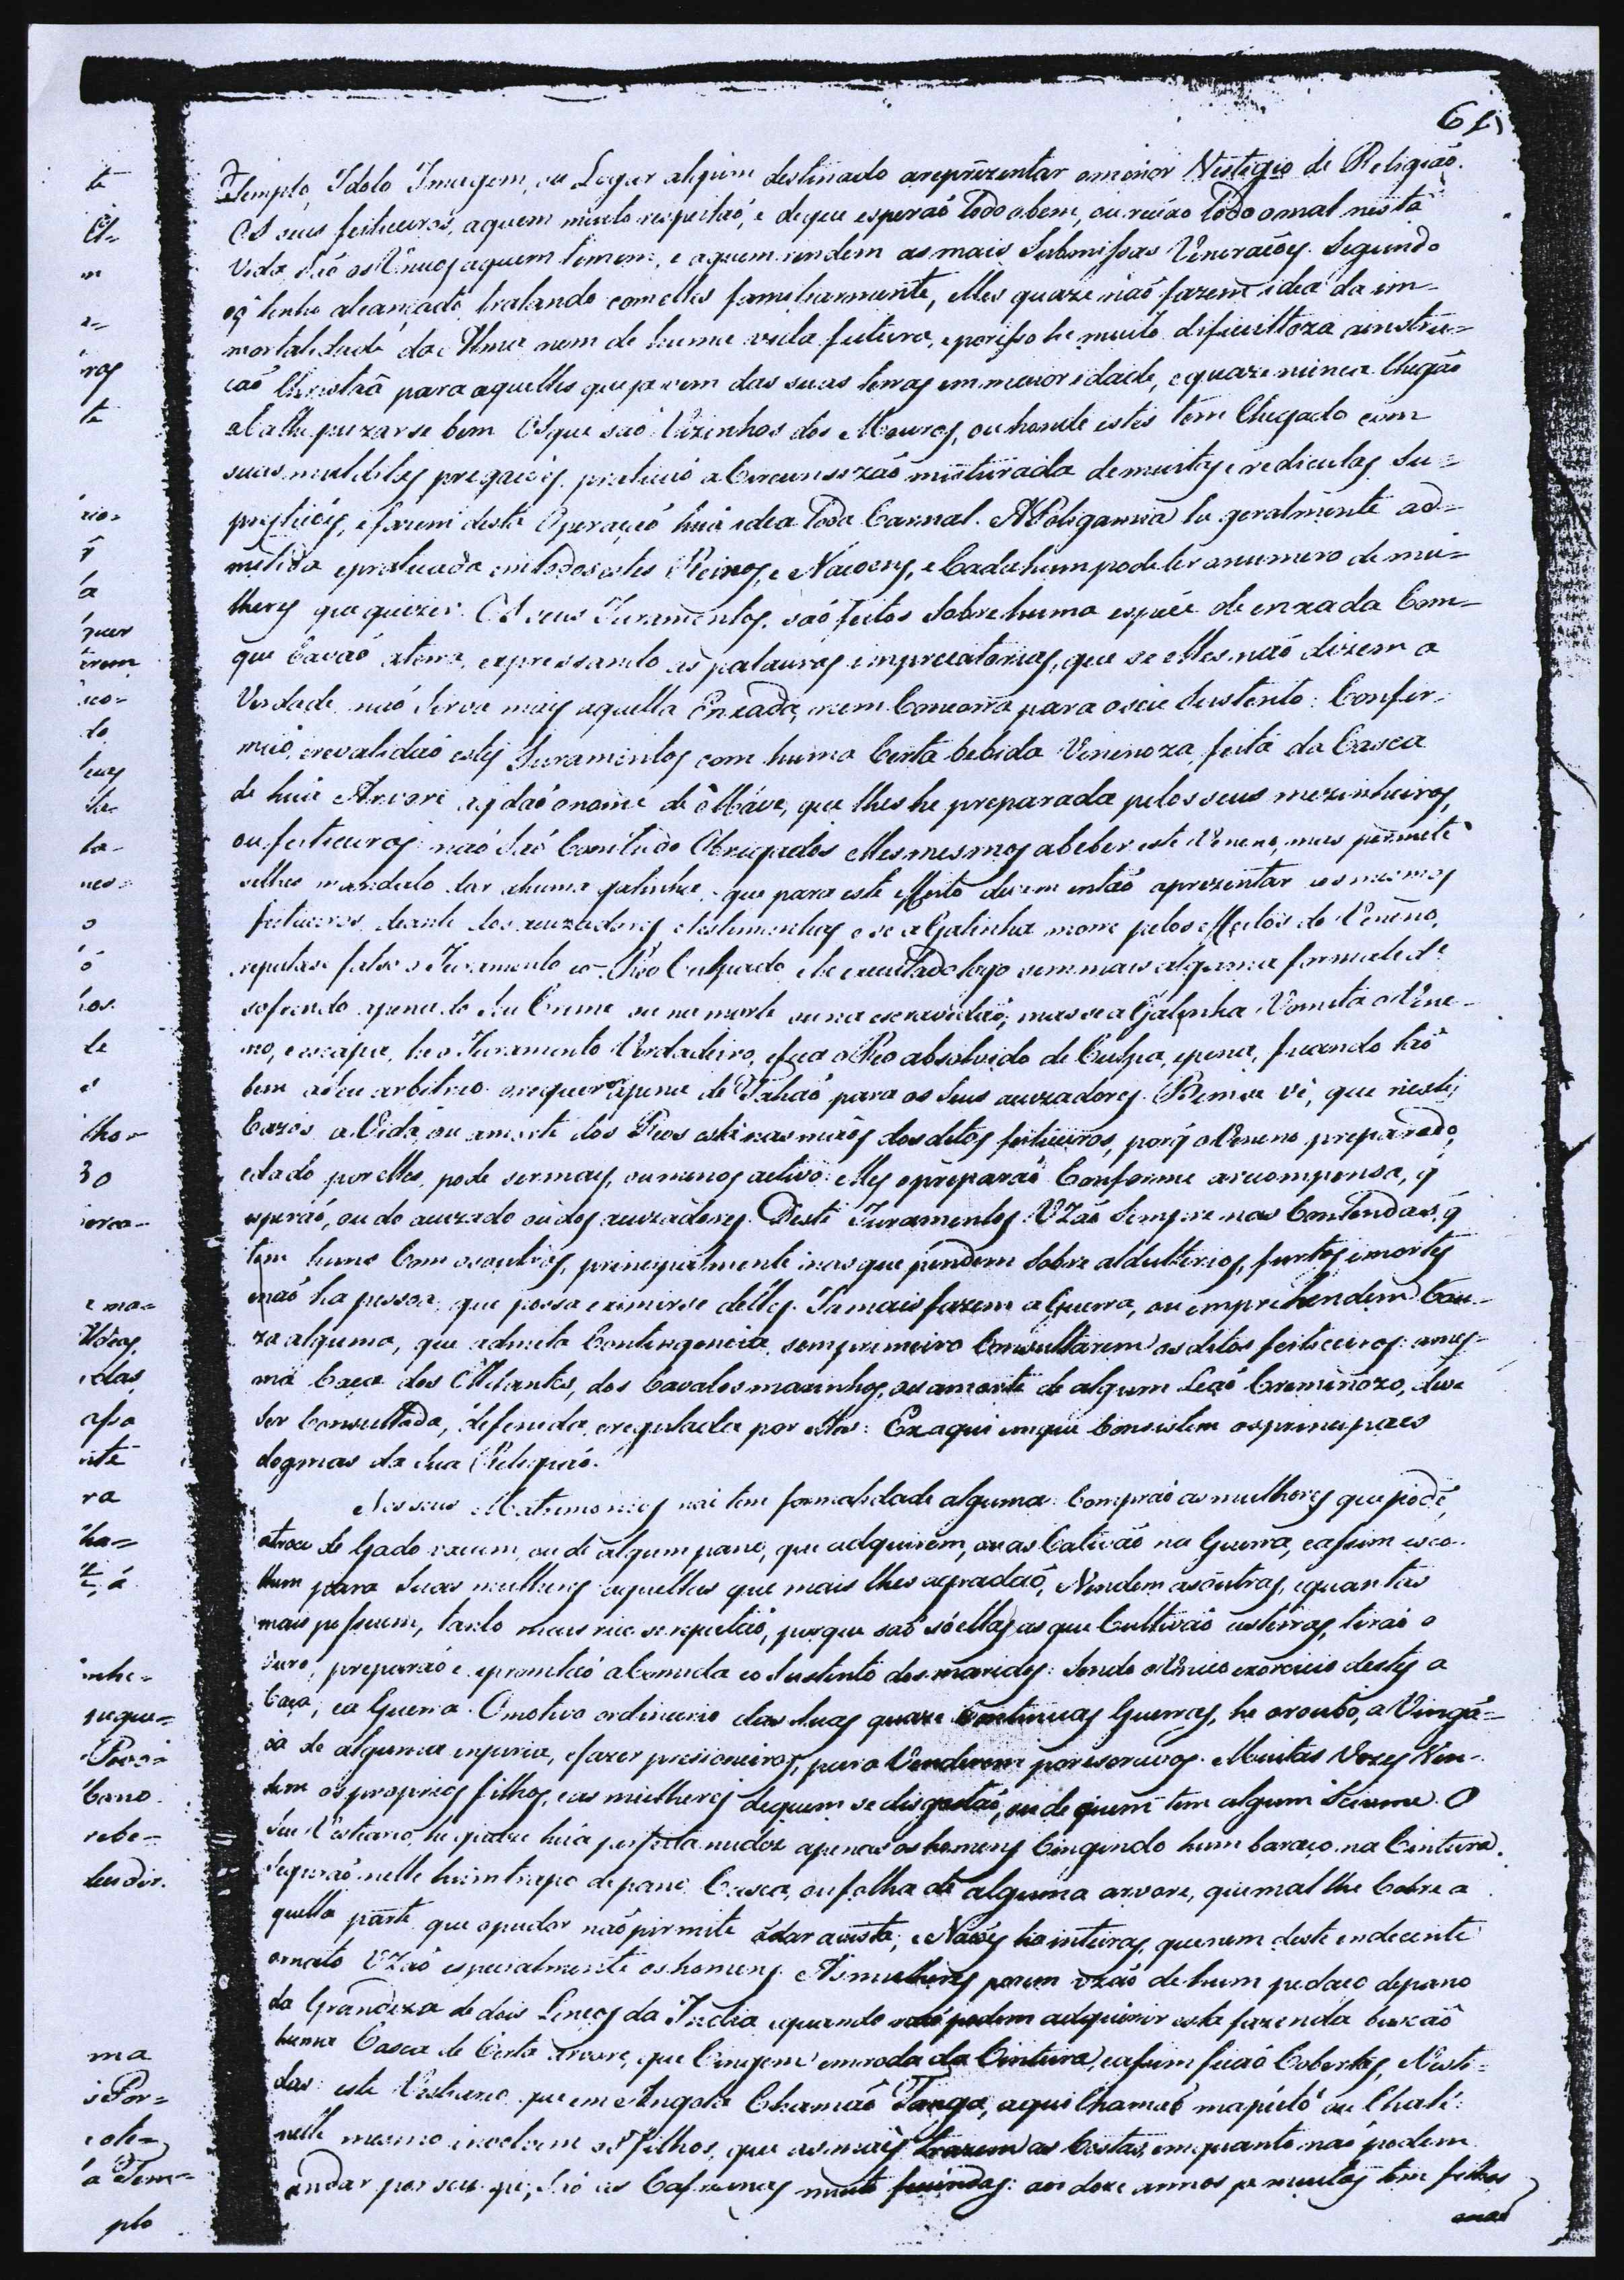 61
Templo, Idolo Imagem, ou Lugar algum destinado areprezentar omenor Vestigio de Religiaõ.
Os seus feiticeiros, aquem muito respeitaõ, e deque esperaõ todo obem, ou todo omal nesta
Vida saõ os Unicos aquem temem, e aquem rendem as mais Submissas Veneraçoẽs. Segundo
oq̃ tenho alcançado, tratando comelles familiarmente, elles quaze naõ fazem idea da im-
mortalidade da Alma nem de huma vida futura, eporisso he muito dificultoza ainstru-
caõ Christã para aquelles que ja vem das suas terras em maior idade, equaze nunca Chegaõ
a Cathequizarse bem. Os que saõ Vizinhos dos Mouros, ou honde estes tem Chegado com
suas pregacoẽs praticaõ a Circunsizaõ misturada de muitas e rediculas Su=
presticoẽs, efazem desta Operaçaõ huã idea toda Carnal. A Poligamia he geralmente ad=
metida epraticada em todos estes Reinos, e Nacoens, e Cada hum pode ter onumero de mu=
lheres que quizer. Os seus Juramentos saõ feitos Sobre huma especie de enxada Com-
que Cavaõ aterra, expressando as palauras imprecatorias, que se elles naõ dizem a
Verdade naõ Serva mais aquella Enxada, nem Concorra para oseu Sustento: Confir-
maõ, erevalidaõ estes Juramentos com huma Certa bebida Venenoza, feita da Casca
de huã Arvore aq̃ daõ onome de Muáve, que lhes he preparada pelos seus mezinheiros,
ou feiticeiros: naõ Saõ Comtudo Obrigados elles mesmos abeber este Veneno, mas permete
selhes mandalo dar ahuma galinha, que para este effeito devem entaõ aprezentar aos mesmos
feiticeiros, diante dos acuzadores etestemunhas, e se a Galinha morre pelos effeitos do Veneno,
reputase falso o Juramento, eo Reo Culpado, ehe executado logo sem mais alguma formalid.e
sofrendo apena do Seu Crime ou na morte ou na escravidaõ; mas se a Galinha Vomita o Vene-
no, e escapa, he o Juramento Verdadeiro, efica o Reo absolvido de Culpa, epena, ficando taõ
bem aSeu arbitrio orequerer apena de Taliaõ para os Seus acuzadores. Bem se vê, que nestes
Cazos a Vida, ou amorte dos Reos está nas maõs dos ditos feiticeiros, porq̃ o Veneno preparado,
edado por elles, pode ser mais, ou menos activo: elles opreparaõ Conforme arecompensa, q̃
esperaõ, ou do acuzado ou dos acuzadores. Deste Juramentos Uzaõ Sempre nas Contendas, q̃
tem huns Com os outros, principalmente nas que pendem Sobre aldulterios, furtos emortes
enaõ ha pessoa, que possa eximirse delles. Jamais fazem a Guerra, ou emprehendem Cou-
za alguma, que admita Contingencia, sem primeiro Consultarem os ditos feiticeiros: ames-
ma Caça dos Elefantes, dos Cavalos marinhos, ou amorte de algum Leaõ Creminozo, deve
Ser Consultada, defenida, eregulada por elles: Exaqui emque Consistem osprincipaes
dogmas da Sua Religiaõ.
Nos seus Matrimonios naõ tem formalidade alguma. Compraõ as mulheres que podẽ,
atroco de Gado vacum, ou de algum pano, que adquirem, ou as Cativaõ na Guerra, eassim esco-
lhem para Suas mulheres aquellas que mais lhes agradaõ, Vendem asoutras, equantas
mais possuem, tanto mais rico se reputaõ, porque saõ só ellas as que Cultivaõ asterras, tiraõ o
Ouro, preparaõ e apromtaõ aComida eo Sustento dos maridos: Sendo o Unico exercicio destes a
Caça, ea Guerra. Omotivo ordinario das Suas quaze Continuas Guerras, he oroubo, a Vingã=
ça de alguma enjuria, efazer prezioneiros, para Venderem por escravos. Muitas Vezes Ven-
dem os proprios filhos, eas mulheres dequem se disgostaõ, ou de quem tem algum Siume. O
Seu Vestiario, he quaze huã perfeita nudez apenas os homens Cingindo hum baraço na Cintura,
Seguraõ nelle hum trapo de pano Casca, ou folha de alguma arvore, que mal lhe Cobre a
quella parte que opudor naõ permite o dar avista, e Naçoẽs ha inteiras, que nem deste endecente
ornato Uzaõ especialmente os homens. As mulheres porem uzaõ de hum pedaco depano
da Grandeza de dois Lencos da India equando naõ podem adquirir esta fazenda buscaõ
huma Casca de Certa arvore, que Cingem emroda da Cintura, eassim ficaõ Cobertas, Vesti=
das: este Vestiario que em Angola Chamaõ Tanga, aqui Chamaõ ou Chale:
nelle mesmo os Filhos, que as mais trazem as Costas, emquanto naõ podem
andar por seu pé; Saõ as Cafrinas muito fecundas: aos doze annos ja muitas tem filhos